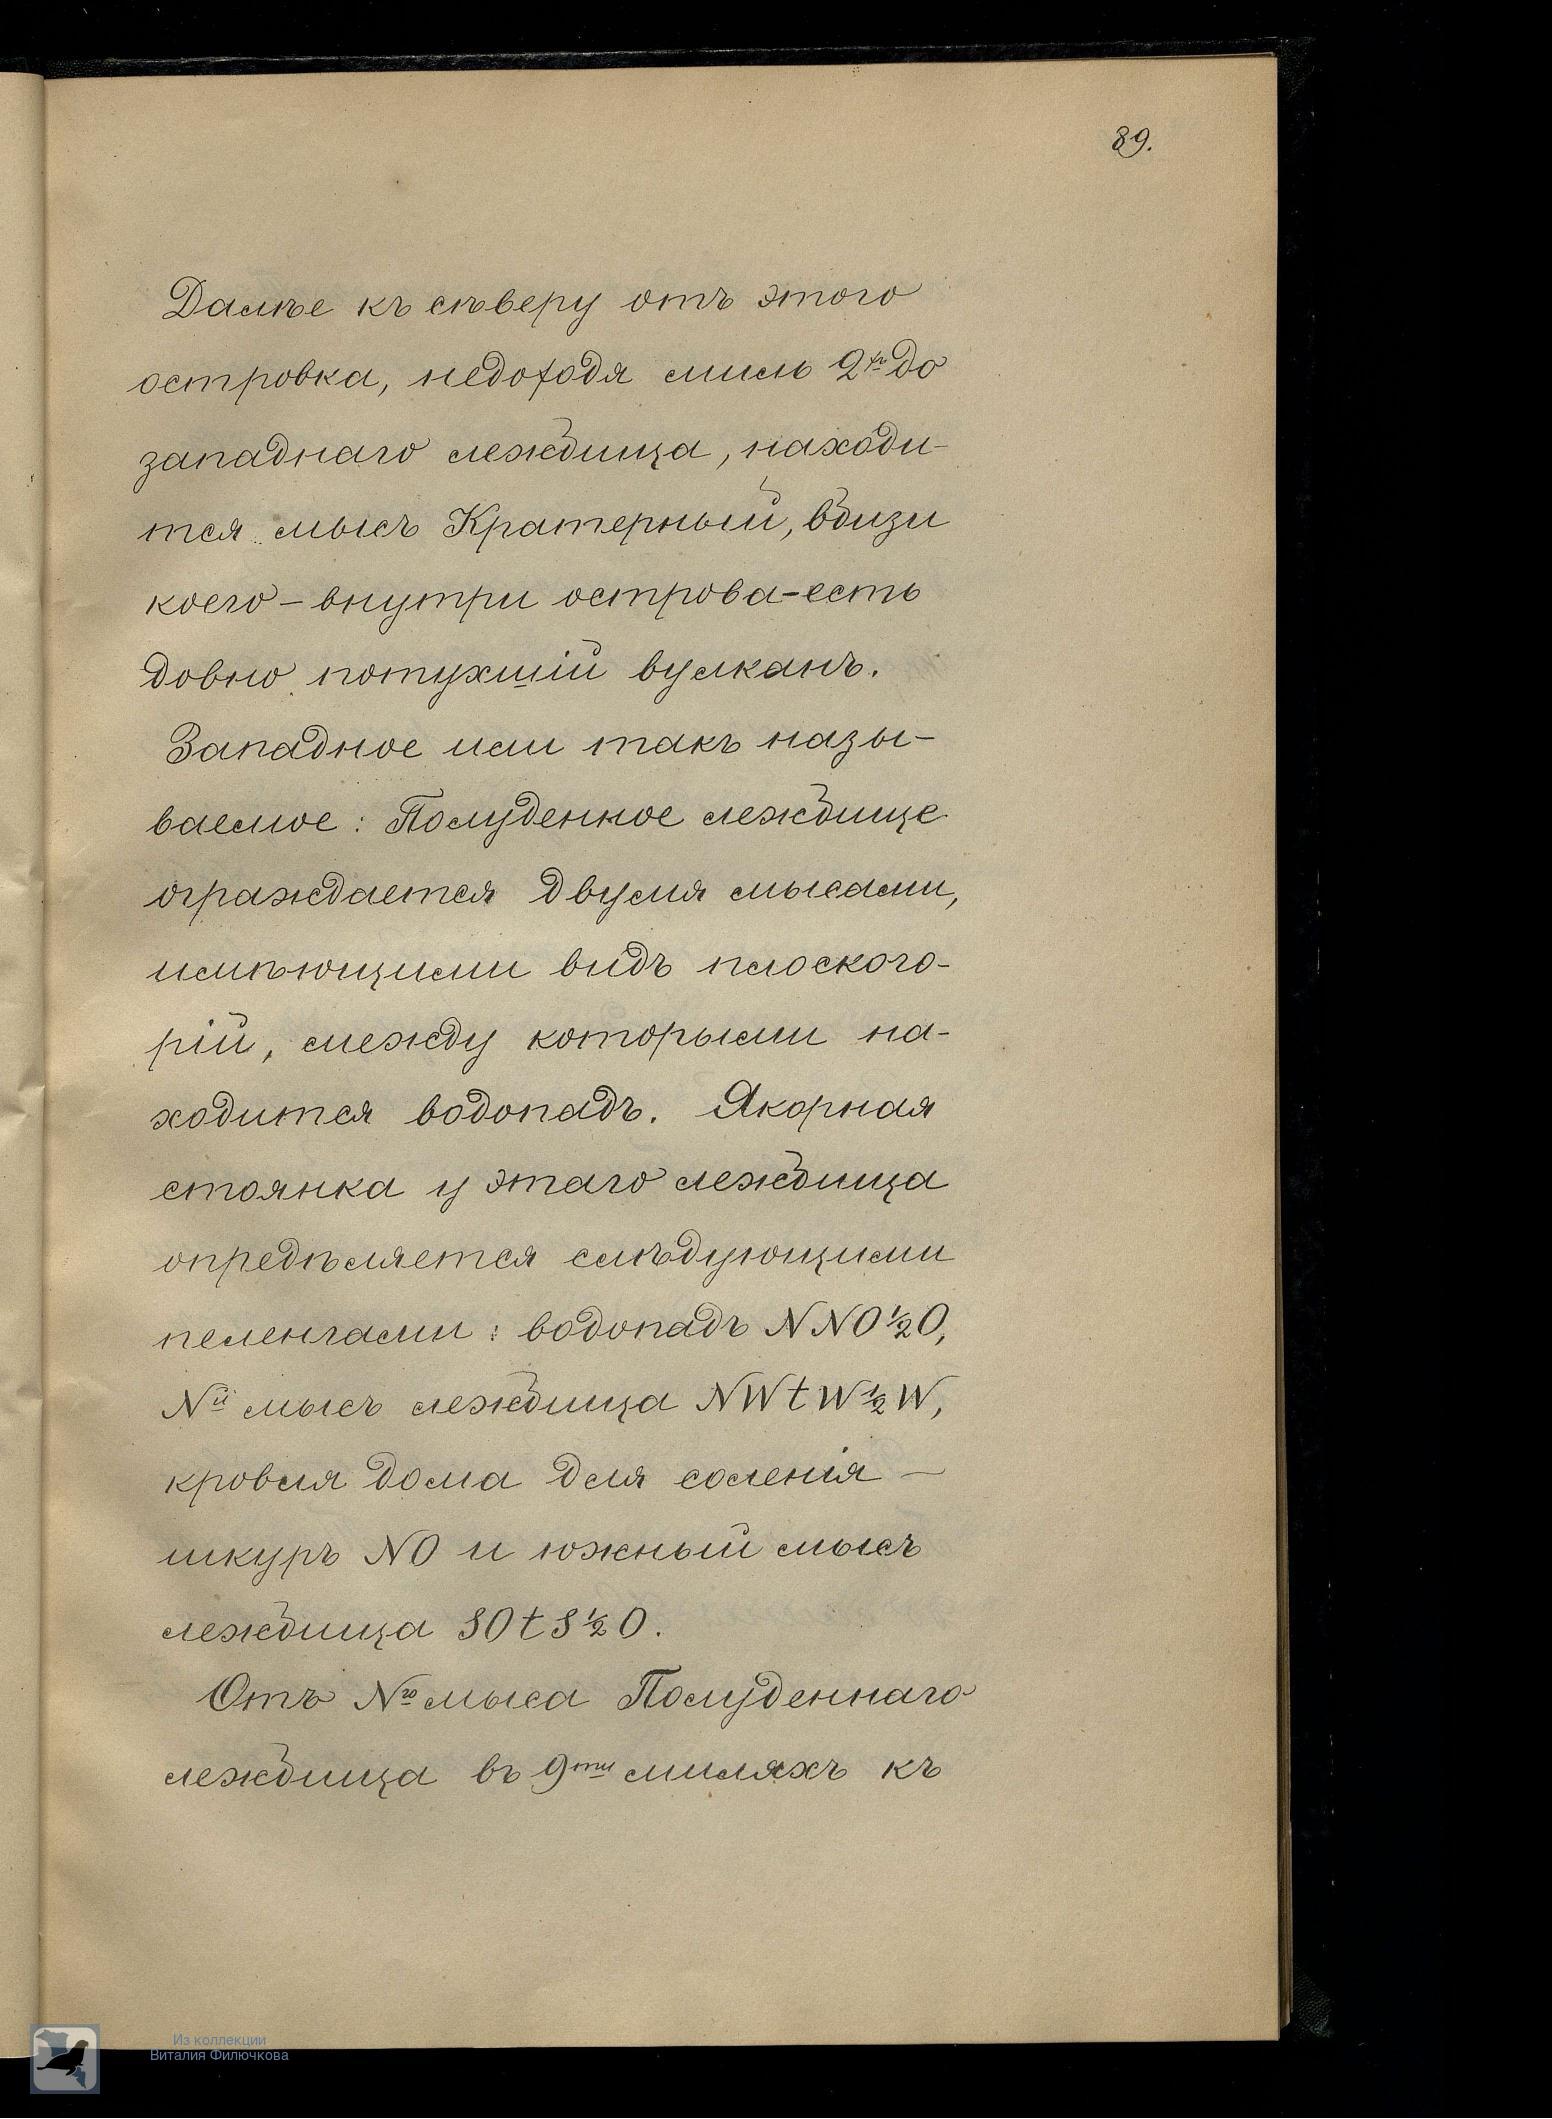 89.
Далѣе къ сѣверу отъ этого
островка, недоходя миль 2хъ до
западнаго лежбища, находи-
тся мысъ Кратерный, вблизи
коего - внутри острова - есть
довно потухшій вулканъ.
Западное или такъ назы-
ваемое: Полуденное лежбище
ограждается двумя мысами,
имѣющими видъ плоского-
рій, между которыми на-
ходится водопадъ. Якорная
стоянка у этаго лежбища
опредѣляется слѣдующими
пеленгами: водопадъ NNO 1/2 O,
Nй мысъ лежбища NWtW 1/2 W,
кровля дома для соленія —
шкуръ NO и южный мысъ
лежбища SOtS 1/2 O.
Отъ Nго мыса Полуденнаго
лежбища въ 9ти миляхъ къ
Из коллекции
Виталия Филючкова